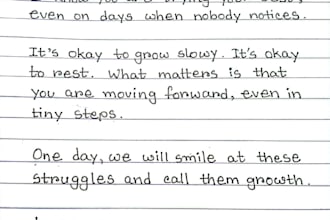 even on days when nobody notices.
It's okay to grow slowy. It's okay
to rest. What matters is that
you are moving forward, even in
tiny steps.
One day, we will smile at these
struggles and call them growth.